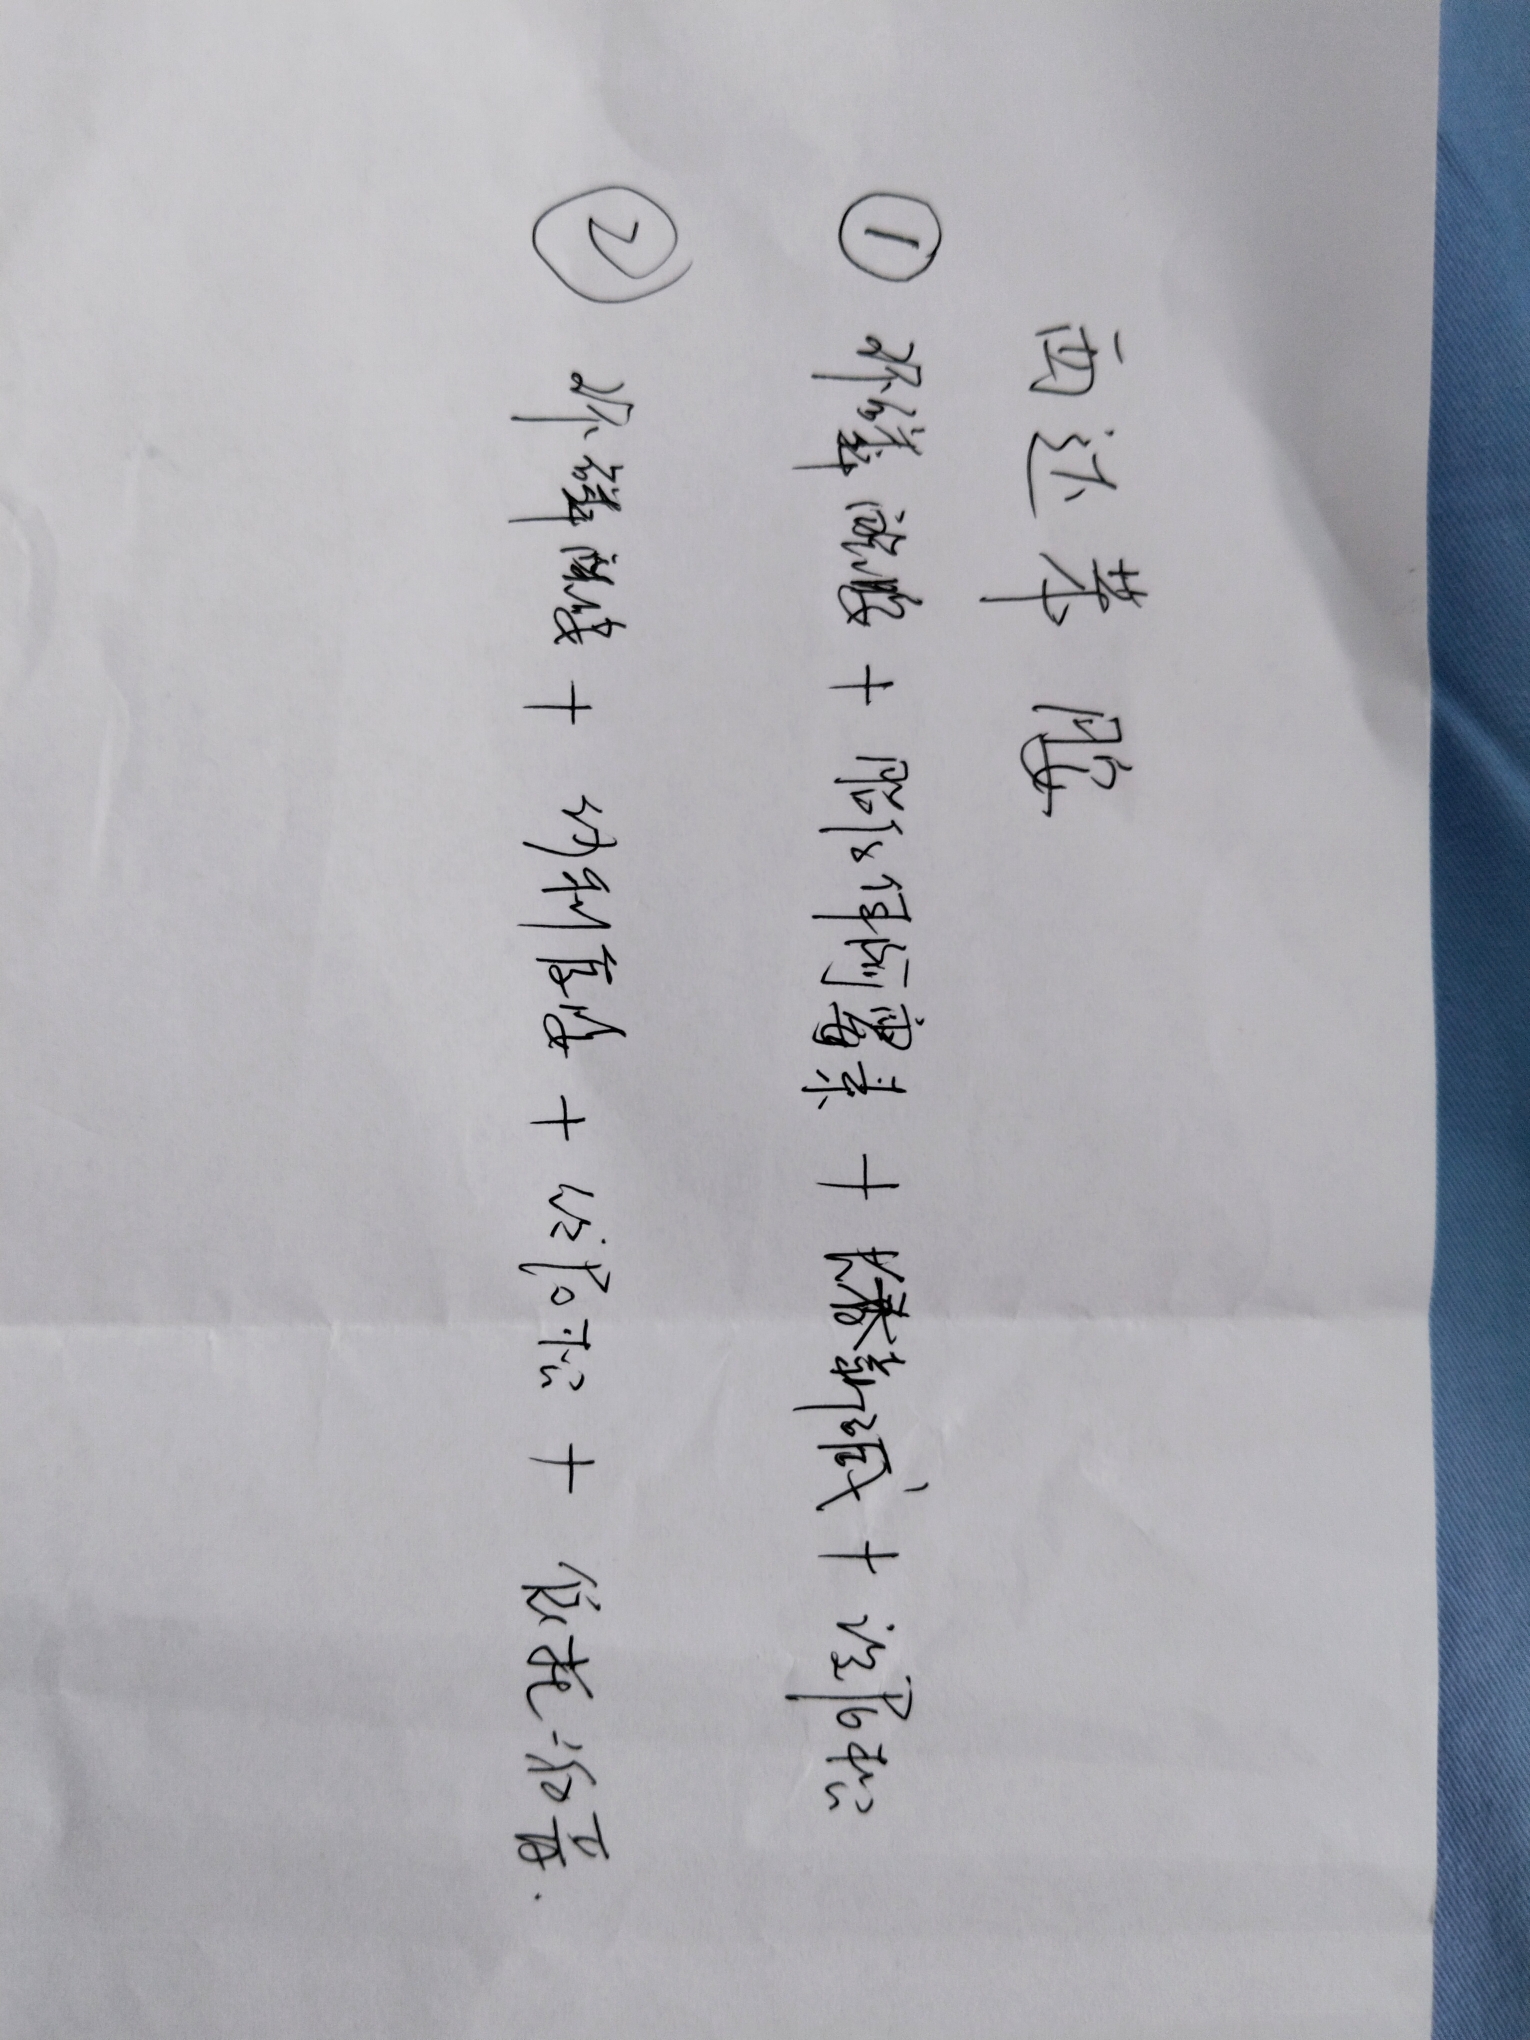 西达本胺
① 环磷酰胺 + 脂质体阿霉素 + 长春新碱 + 泼尼松
② 环磷酰胺 + 来那度胺 + 泼尼松 + 依托泊苷.